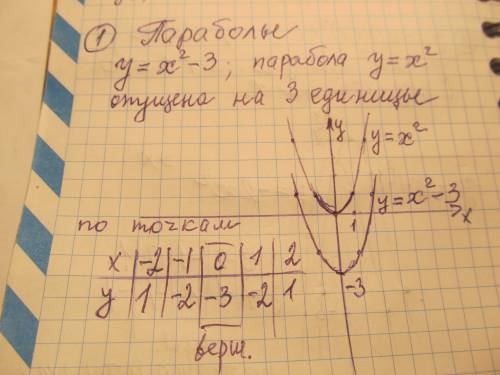 ① Параболы
y = x² - 3 ; парабола y = x²
опущена на 3 единицы
y
y = x²
y = x² - 3
x
1
по точкам
x | -2 | -1 | 0 | 1 | 2
y | 1 | -2 | -3 | -2 | 1
-3
верш.